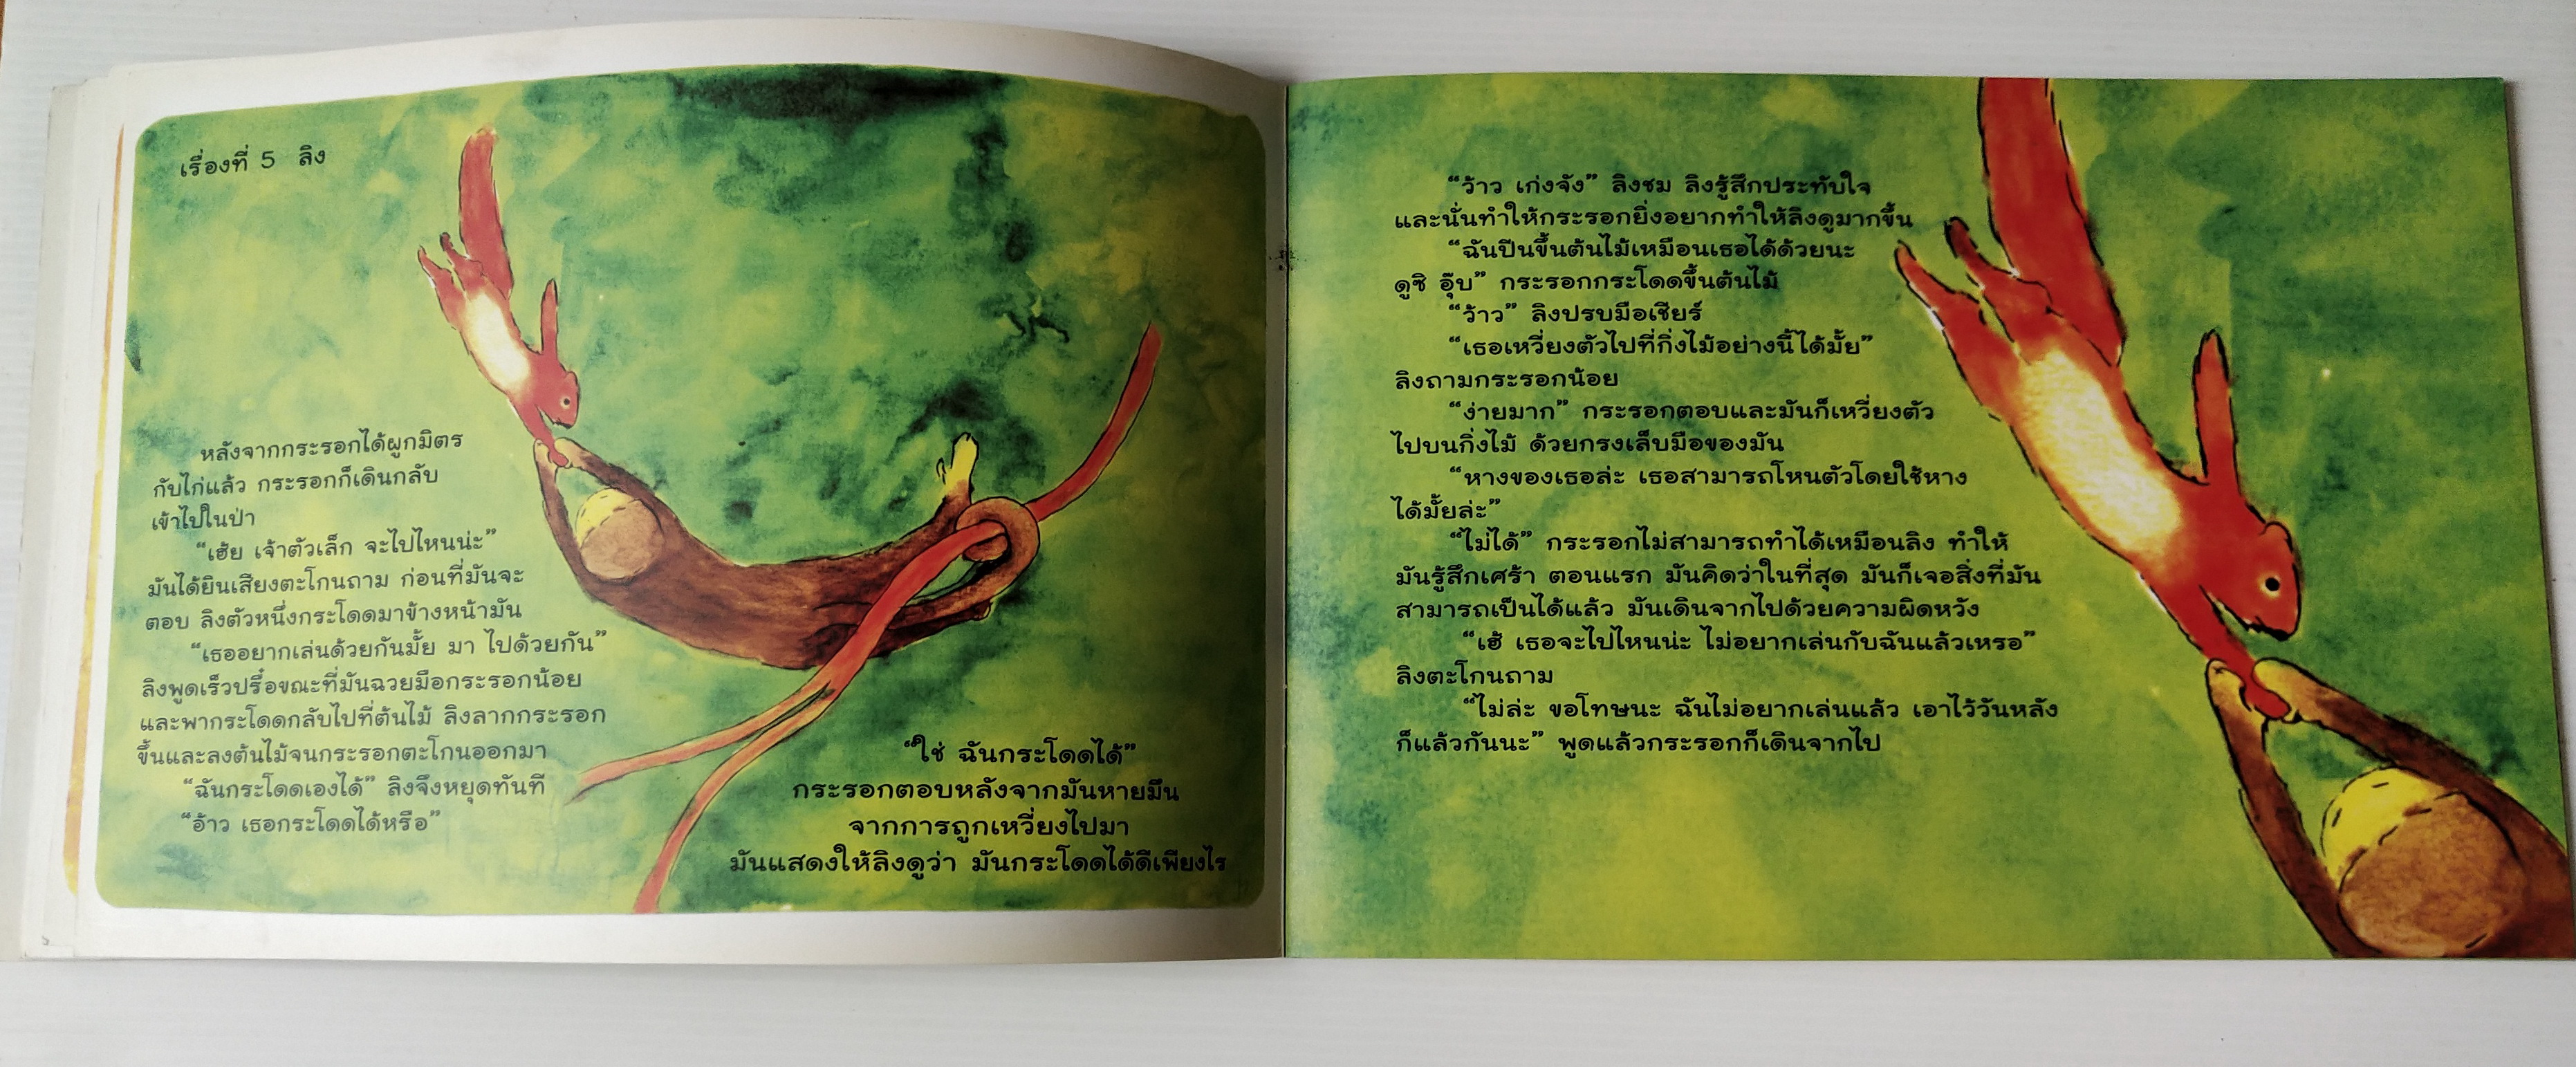 เรื่องที่ 5 ลิง
หลังจากกระรอกได้ผูกมิตร
กับไก่แล้ว กระรอกก็เดินกลับ
เข้าไปในป่า
“เฮ้ย เจ้าตัวเล็ก จะไปไหนน่ะ”
มันได้ยินเสียงตะโกนถาม ก่อนที่มันจะ
ตอบ ลิงตัวหนึ่งกระโดดมาข้างหน้ามัน
“เธออยากเล่นด้วยกันมั้ย มา ไปด้วยกัน”
ลิงพูดเร็วปรื๋อขณะที่มันฉวยมือกระรอกน้อย
และพากระโดดกลับไปที่ต้นไม้ ลิงลากกระรอก
ขึ้นและลงต้นไม้จนกระรอกตะโกนออกมา
“ฉันกระโดดเองได้” ลิงจึงหยุดทันที
“อ้าว เธอกระโดดได้หรือ”
“ใช่ ฉันกระโดดได้”
กระรอกตอบหลังจากมันหายมึน
จากการถูกเหวี่ยงไปมา
มันแสดงให้ลิงดูว่า มันกระโดดได้ดีเพียงไร
“ว้าว เก่งจัง” ลิงชม ลิงรู้สึกประทับใจ
และนั่นทำให้กระรอกยิ่งอยากทำให้ลิงดูมากขึ้น
“ฉันปีนขึ้นต้นไม้เหมือนเธอได้ด้วยนะ
ดูซิ อุ๊บ” กระรอกกระโดดขึ้นต้นไม้
“ว้าว” ลิงปรบมือเชียร์
“เธอเหวี่ยงตัวไปที่กิ่งไม้อย่างนี้ได้มั้ย”
ลิงถามกระรอกน้อย
“ง่ายมาก” กระรอกตอบและมันก็เหวี่ยงตัว
ไปบนกิ่งไม้ ด้วยกรงเล็บมือของมัน
“หางของเธอล่ะ เธอสามารถโหนตัวโดยใช้หาง
ได้มั้ยล่ะ”
“ไม่ได้” กระรอกไม่สามารถทำได้เหมือนลิง ทำให้
มันรู้สึกเศร้า ตอนแรก มันคิดว่าในที่สุด มันก็เจอสิ่งที่มัน
สามารถเป็นได้แล้ว มันเดินจากไปด้วยความผิดหวัง
“เฮ้ เธอจะไปไหนน่ะ ไม่อยากเล่นกับฉันแล้วเหรอ”
ลิงตะโกนถาม
“ไม่ล่ะ ขอโทษนะ ฉันไม่อยากเล่นแล้ว เอาไว้วันหลัง
ก็แล้วกันนะ” พูดแล้วกระรอกก็เดินจากไป